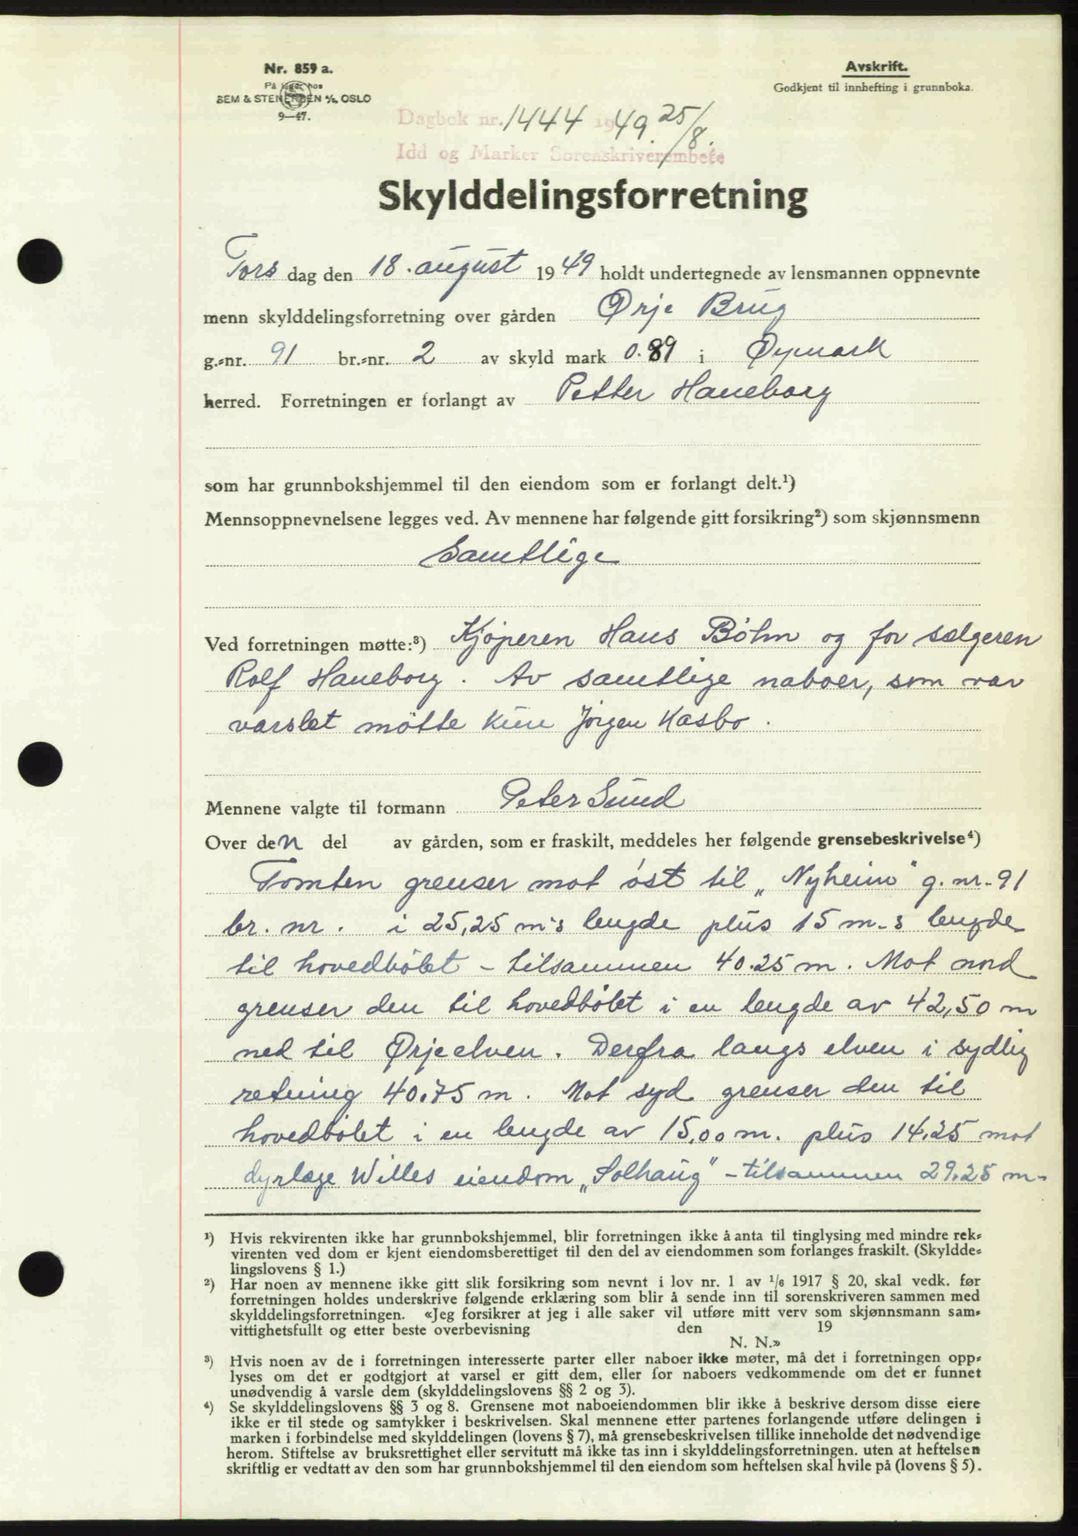 Nr. 859 a.
På lager hos
SEM & STENERSEN A/S, OSLO
9—47.
Avskrift.
Godkjent til innhefting i grunnboka.
Dagbok nr. 1444 1949. 25/8.
Idd og Marker Sorenskriverembete
Skylddelingsforretning
Tors dag den 18. august 1949 holdt undertegnede av lensmannen oppnevnte
menn skylddelingsforretning over gården Ørje Brug
g.-nr. 91 br.-nr. 2 av skyld mark 0.89 i Øymark
herred. Forretningen er forlangt av Petter Haneborg
som har grunnbokshjemmel til den eiendom som er forlangt delt.¹)
Mennsoppnevnelsene legges ved. Av mennene har følgende gitt forsikring²) som skjønnsmenn
Samtlige
Ved forretningen møtte:³) Kjøperen Hans Bøhm og for sælgeren
Rolf Haneborg. Av samtlige naboer, som var
varslet møtte kun Jørgen Kasbo.
Mennene valgte til formann Peter Sund
Over den del av gården, som er fraskilt, meddeles her følgende grensebeskrivelse⁴)
Tomten grenser mot øst til „Nyheim" g. nr. 91
br. nr. i 25,25 m-s lengde plus 15 m-s lengde
til hovedbølet - tilsammen 40.25 m. Mot nord
grenser den til hovedbølet i en lengde av 42,50 m
ned til Ørjeelven. Derfra langs elven i sydlig
retning 40.75 m. Mot syd grenser den til
hovedbølet i en lengde av 15,00 m. plus 14.25 mot
dyrlæge Willes eiendom „Solhaug" - tilsammen 29.25 m-
¹) Hvis rekvirenten ikke har grunnbokshjemmel, blir forretningen ikke å anta til tinglysing med mindre rek-
virenten ved dom er kjent eiendomsberettiget til den del av eiendommen som forlanges fraskilt. (Skyldde-
lingslovens § 1.)
²) Har noen av mennene ikke gitt slik forsikring som nevnt i lov nr. 1 av 1/6 1917 § 20, skal vedk. før
forretningen holdes underskrive følgende erklæring som blir å sende inn til sorenskriveren sammen med
skylddelingsforretningen. «Jeg forsikrer at jeg i alle saker vil utføre mitt verv som skjønnsmann sam-
vittighetsfullt og etter beste overbevisning den 19
N. N.»
³) Hvis noen av de i forretningen interesserte parter eller naboer ikke møter, må det i forretningen opp-
lyses om det er godtgjort at varsel er gitt dem, eller for naboers vedkommende om det er funnet
unødvendig å varsle dem (skylddelingslovens §§ 2 og 3).
⁴) Se skylddelingslovens §§ 3 og 8. Grensene mot naboeiendommen blir ikke å beskrive dersom disse eiere
ikke er til stede og samtykker i beskrivelsen. Skal mennene etter partenes forlangende utføre delingen i
marken i forbindelse med skylddelingen (lovens § 7), må grensebeskrivelsen tillike inneholde det nødvendige
herom. Stiftelse av bruksrettighet eller servitutt må ikke tas inn i skylddelingsforretningen. uten at heftelsen
skriftlig er vedtatt av den som har grunnbokshjemmel til den eiendom som heftelsen skal hvile på (lovens § 5).